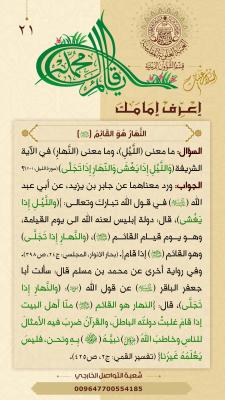 ٢١
قائم آل محمد
إعرف إمامك
النَّهارُ هُوَ القَائِمُ
السؤال: ما معنى (اللَّيْلِ)، وما معنى (النَّهارِ) في الآية
الشريفة (وَاللَّيْلِ إِذَا يَغْشَى وَالنَّهَارِ إِذَا تَجَلَّى)
الجواب: ورد معناهما عن جابر بن يزيد، عن أبي عبد
الله في قول الله تبارك وتعالى: (وَاللَّيْلِ إِذَا
يَغْشَى)، قال: دولة إبليس لعنه الله الى يوم القيامة،
وهو يوم قيام القائم، (وَالنَّهَارِ إِذَا تَجَلَّى)
وهو القائم إذا قام. (بحار الأنوار، المجلسي: ج٢٤، ص٣٩٨).
وفي رواية أخرى عن محمد بن مسلم قال: سألت أبا
جعفر الباقر عن قول الله: (وَالنَّهَارِ إِذَا
تَجَلَّى)، قال: (النهار هو القائم منّا أهل البيت
إذا قام غلبت دولته الباطل، والقرآن ضرب فيه الأمثال
للناس وخاطب الله نبيَّه به ونحن، فليس
يَعْلَمُهُ غَيْرُنَا) (تفسير القمي: ج٢، ص٤٢٥).
شعبة التواصل الخارجي
009647700554185